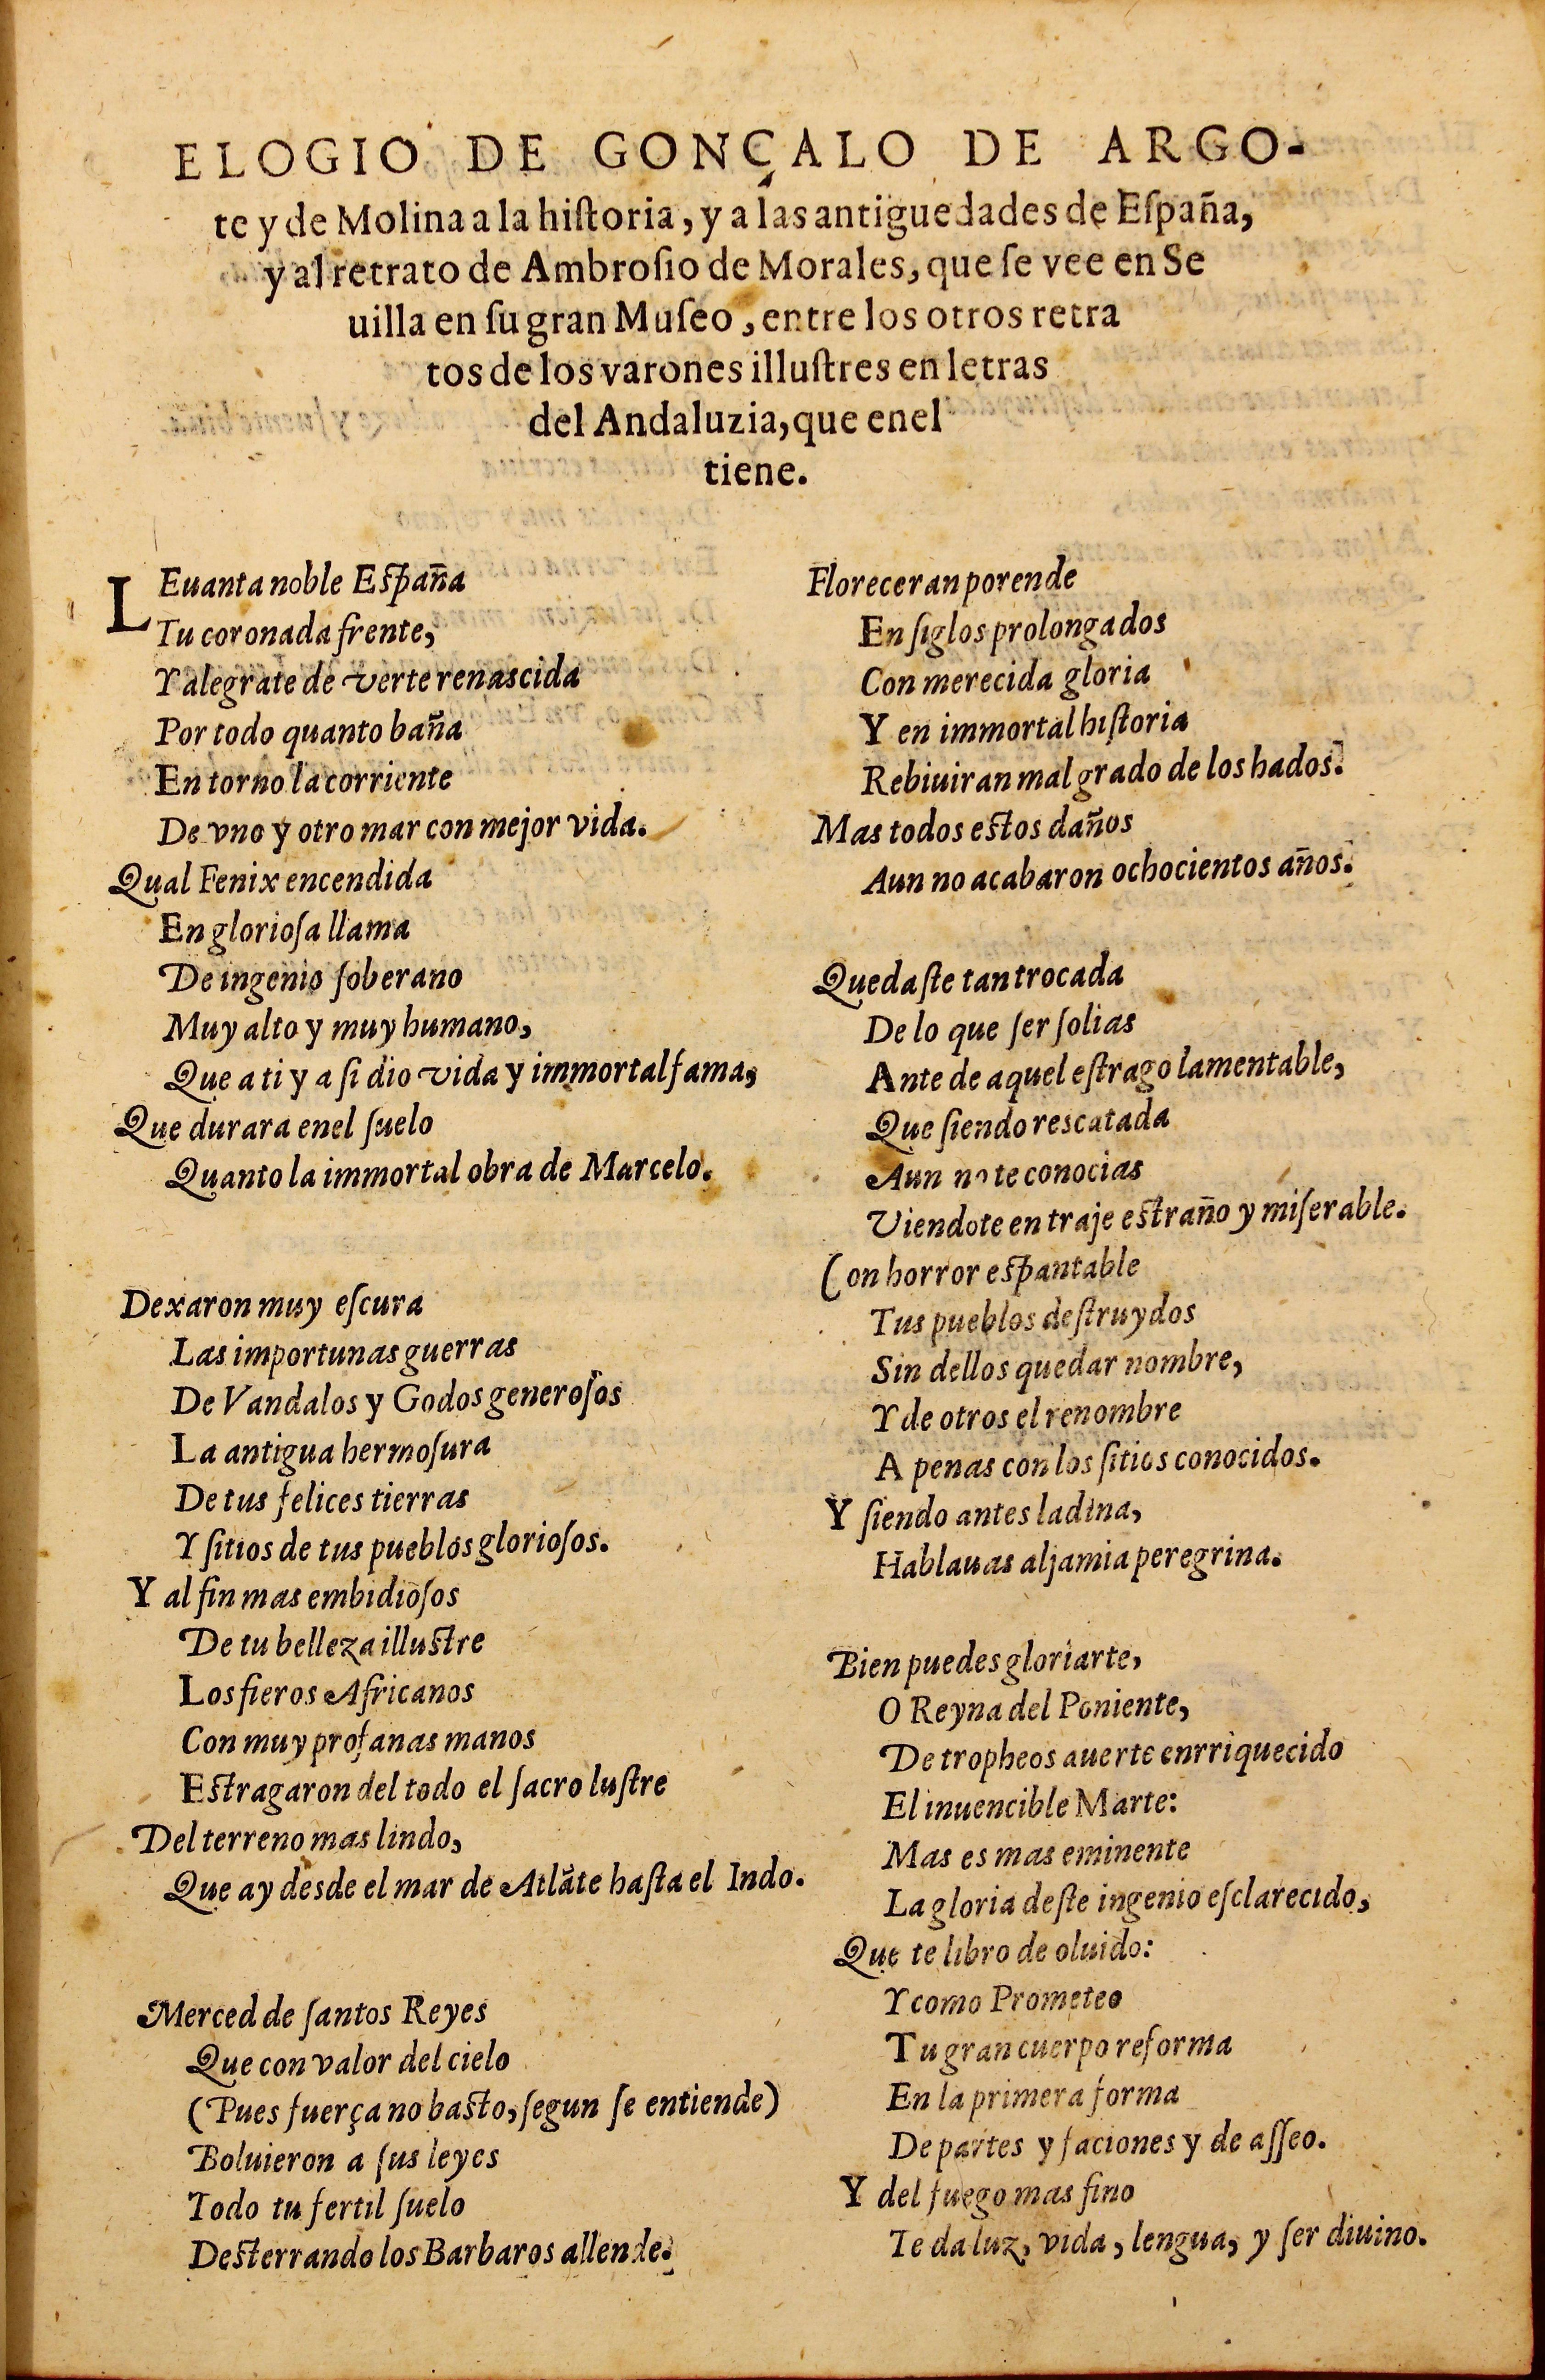 ELOGIO DE GONÇALO DE ARGO-
te y de Molina a la hiſtoria, y a las antiguedades de Eſpaña,
y al retrato de Ambroſio de Morales, que ſe vee en Se
uilla en ſu gran Muſeo, entre los otros retra
tos de los varones illuſtres en letras
del Andaluzia, que enel
tiene.
LEuanta noble Eſpaña
Tu coronada frente,
Y alegrate de verte renascida
Por todo quanto baña
En torno la corriente
De vno y otro mar con mejor vida.
Qual Fenix encendida
En glorioſa llama
De ingenio ſoberano
Muy alto y muy humano,
Que a ti y a ſi dio vida y immortal fama,
Que durara enel ſuelo
Quanto la immortal obra de Marcelo.
Dexaron muy eſcura
Las importunas guerras
De Vandalos y Godos generoſos
La antigua hermoſura
De tus felices tierras
Y ſitios de tus pueblos glorioſos.
Y al fin mas embidioſos
De tu belleza illuſtre
Los fieros Africanos
Con muy profanas manos
Eſtragaron del todo el ſacro luſtre
Del terreno mas lindo,
Que ay desde el mar de Atlãte haſta el Indo.
Merced de ſantos Reyes
Que con valor del cielo
(Pues fuerça no baſto, ſegun ſe entiende)
Boluieron a ſus leyes
Todo tu fertil ſuelo
Deſterrando los Barbaros allende.
Floreceran porende
En ſiglos prolongados
Con merecida gloria
Y en immortal hiſtoria
Rebiuiran mal grado de los hados.
Mas todos eſtos daños
Aun no acabaron ochocientos años.
Quedaſte tan trocada
De lo que ſer ſolias
Ante de aquel eſtrago lamentable,
Que ſiendo rescatada
Aun no te conocias
Viendote en traje eſtraño y miſerable.
Con horror eſpantable
Tus pueblos deſtruydos
Sin dellos quedar nombre,
Y de otros el renombre
A penas con los ſitios conocidos.
Y ſiendo antes ladina,
Hablauas aljamia peregrina.
Bien puedes gloriarte,
O Reyna del Poniente,
De tropheos auerte enrriquecido
El inuencible Marte:
Mas es mas eminente
La gloria deſte ingenio eſclarecido,
Que te libro de oluido:
Y como Prometeo
Tu gran cuerpo reforma
En la primera forma
De partes y faciones y de aſſeo.
Y del fuego mas fino
Te da luz, vida, lengua, y ſer diuino.